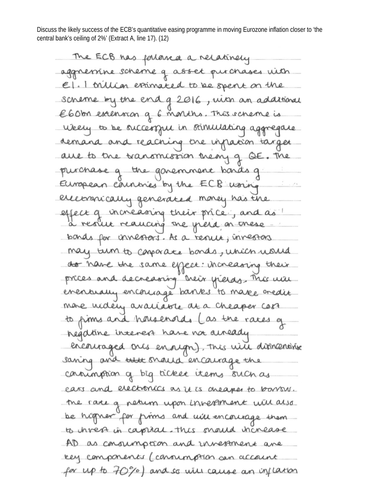 Discuss the likely success of the ECB's quantitative easing programme in moving Eurozone inflation closer to 'the
central bank's ceiling of 2%' (Extract A, line 17). (12)
The ECB has followed a relatively
aggressive scheme of asset purchases with
€1.1 trillion estimated to be spent on the
scheme by the end of 2016, with an additional
€60bn extension of 6 months. This scheme is
likely to be successful in stimulating aggregate
demand and reaching the inflation target
due to the transmission theory of QE. The
purchase of the government bonds of
European countries by the ECB using
electronically generated money has the
effect of increasing their price, and as
a result reducing the yield on these
bonds for investors. As a result, investors
may turn to corporate bonds, which would
have the same effect: increasing their
prices and decreasing their yields. This will
eventually encourage banks to make credit
more widely available at a cheaper cost
to firms and households (as the rates of
negative interest have not already
encouraged this enough). This will disincentivise
saving and should encourage the
consumption of big ticket items such as
cars and electronics as it is cheaper to borrow.
The rate of return upon investment will also
be higher for firms and will encourage them
to invest in capital. This should increase
AD as consumption and investment are
key components (consumption can account
for up to 70%) and so will cause an inflation